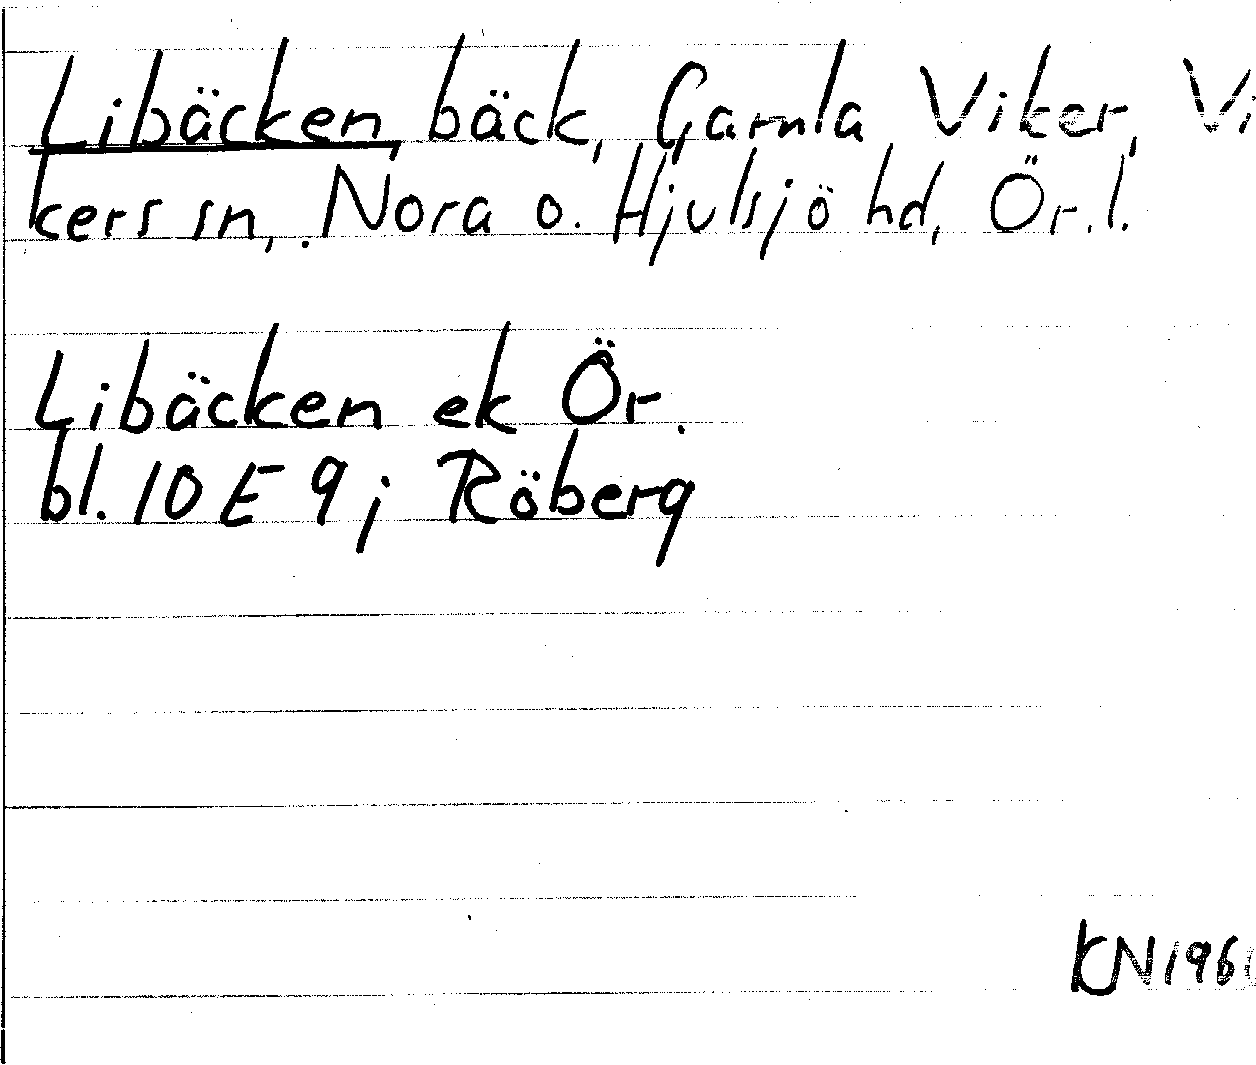 Libäcken, bäck, Gamla Viker, Vi
kers sn, Nora o. Hjulsjö hd, Ör. l.
Libäcken ek Ör.
bl. 10 E 9 j Röberg